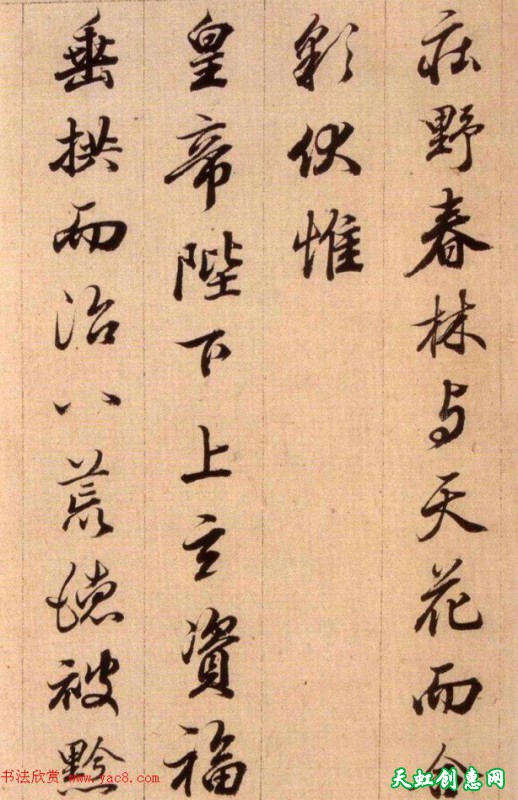 庄野春林与天花而合
彩伏惟
皇帝陛下上玄資福
垂拱而治八荒德被黔
书法欣赏 www.yac8.com
天虹创惠网